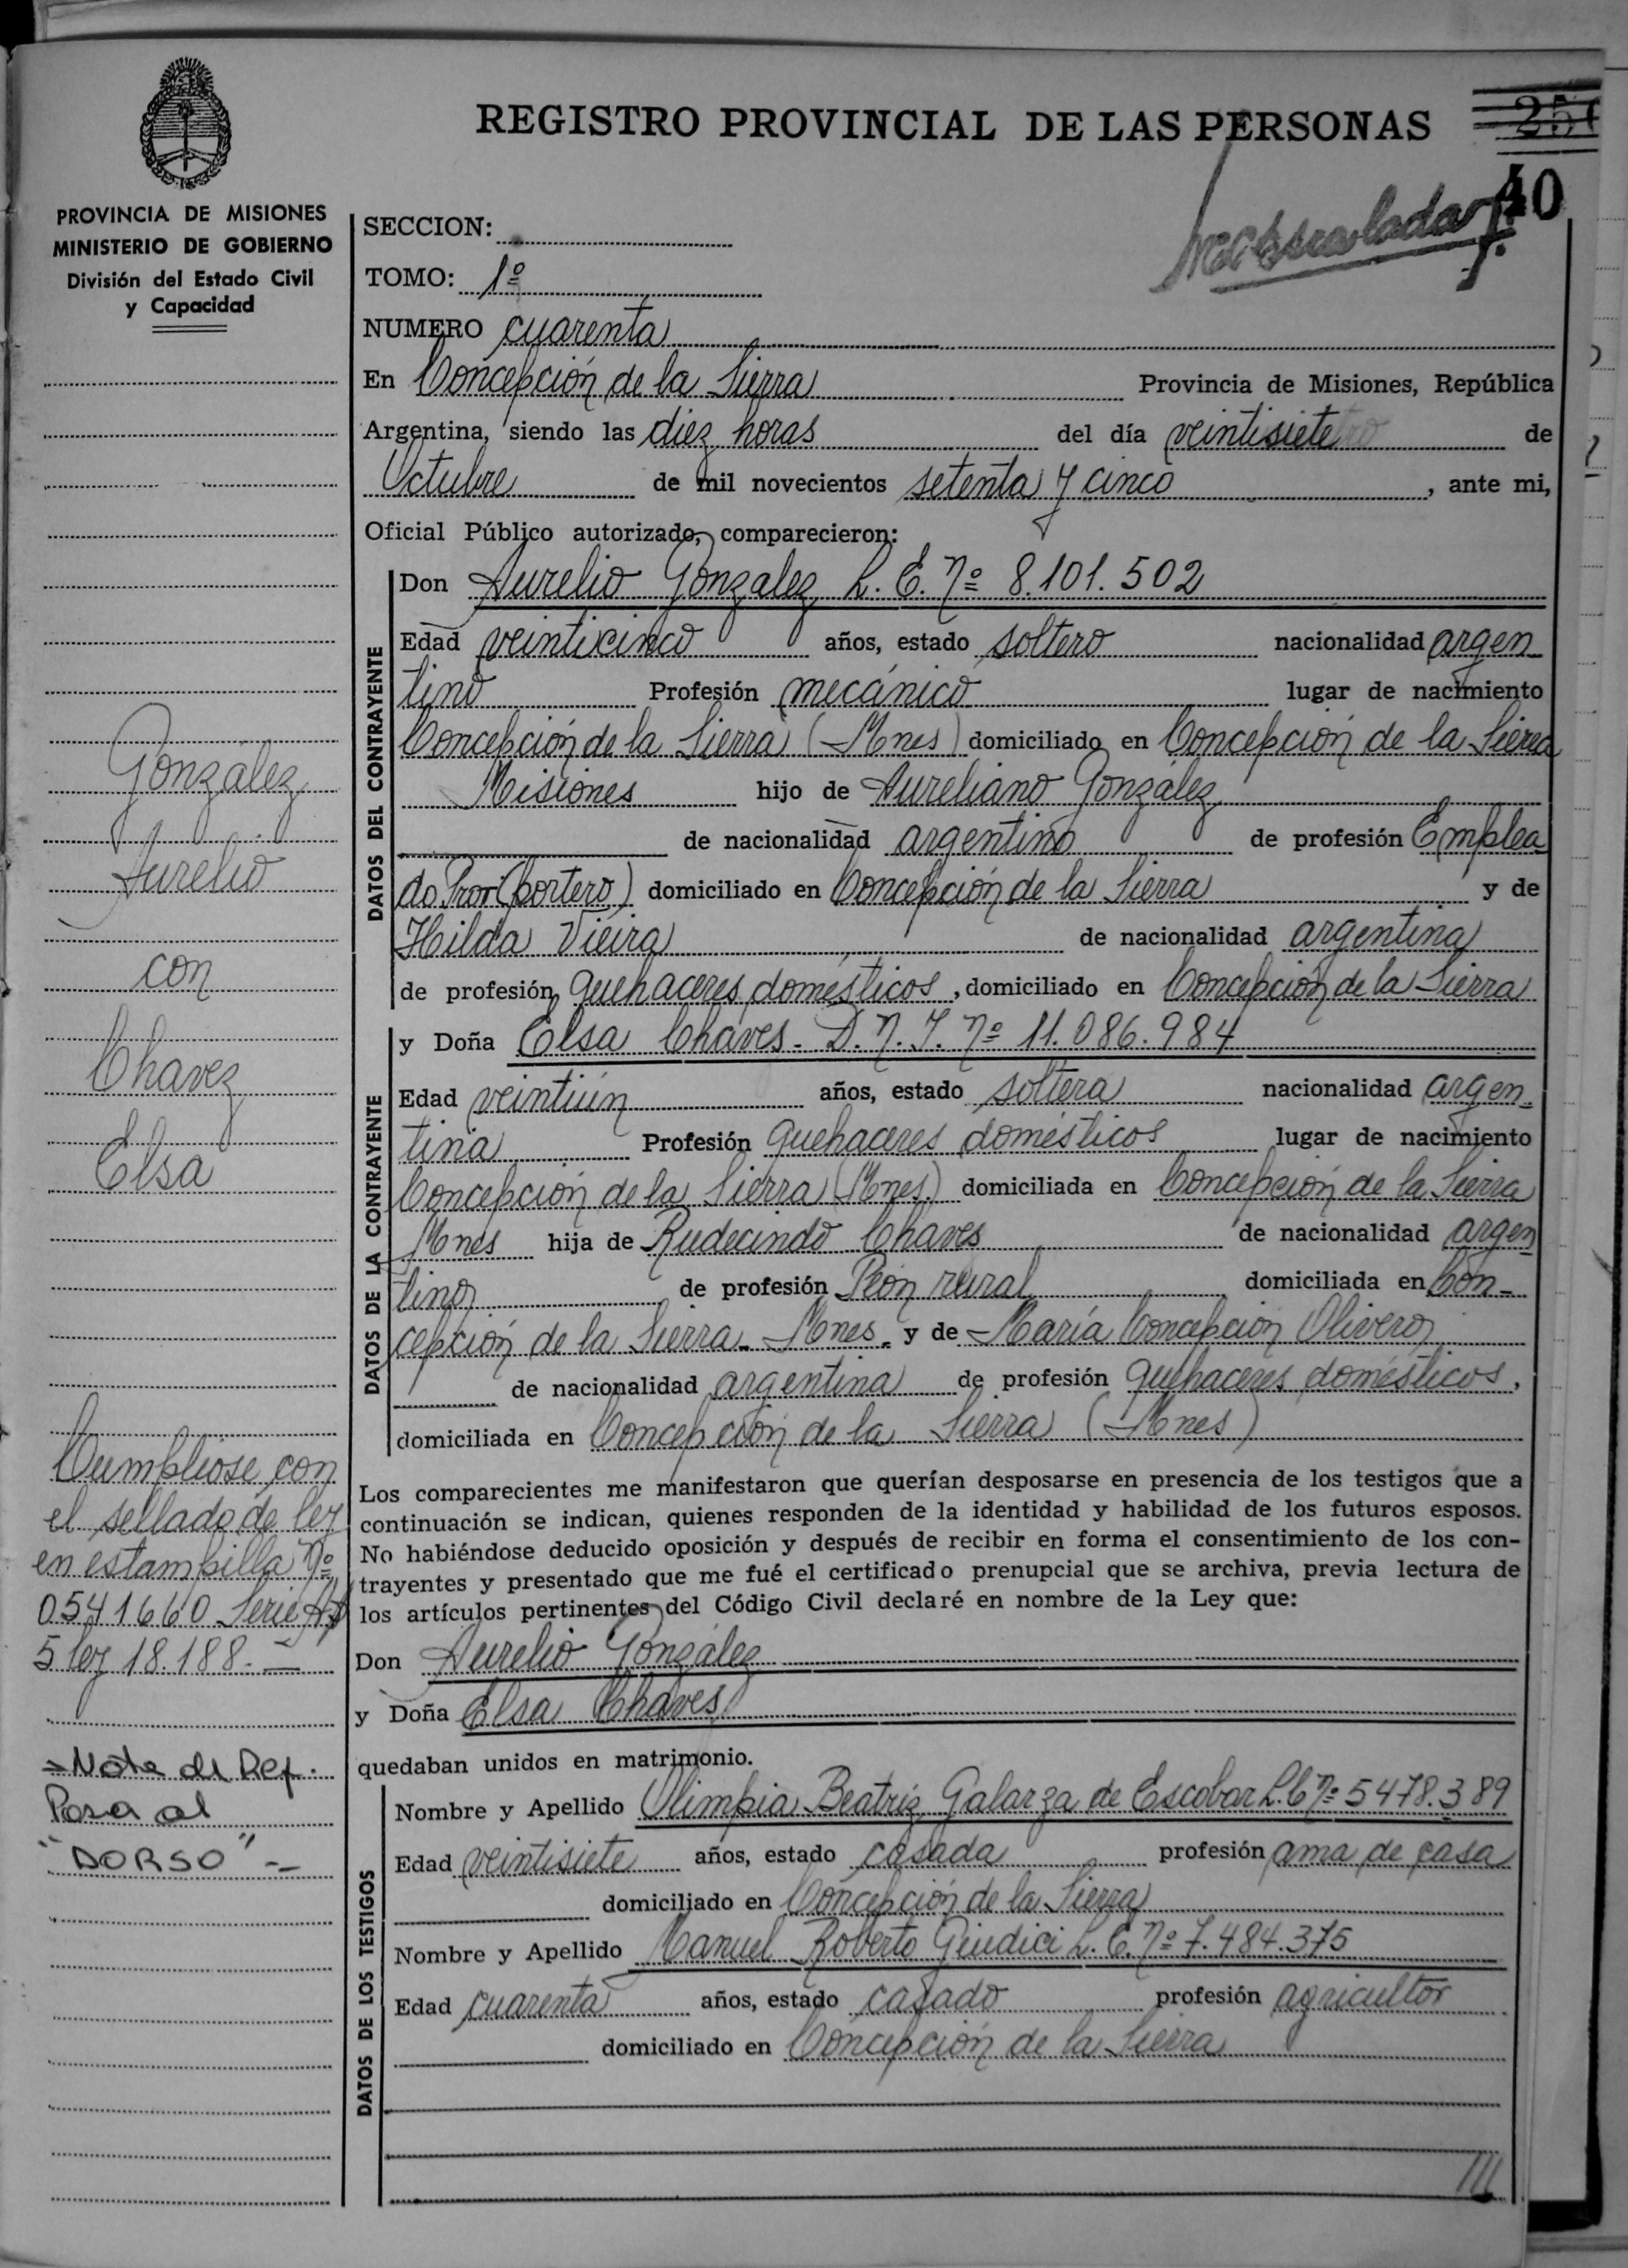 REGISTRO PROVINCIAL DE LAS PERSONAS
40
PROVINCIA DE MISIONES
MINISTERIO DE GOBIERNO
División del Estado Civil
y Capacidad
SECCION:
TOMO: 1º
NUMERO cuarenta
En Concepción de la Sierra Provincia de Misiones, República
Argentina, siendo las diez horas del día veintisiete de
Octubre de mil novecientos setenta y cinco, ante mi,
Oficial Público autorizado, comparecieron:
DATOS DEL CONTRAYENTE
Don Aurelio González L. E. Nº 8.101.502
Edad veinticinco años, estado soltero nacionalidad argen
tino Profesión mecánico lugar de nacimiento
Concepción de la Sierra (Mnes) domiciliado en Concepción de la Sierra
Misiones hijo de Aureliano González
de nacionalidad argentino de profesión Emplea
do Prov. (portero) domiciliado en Concepción de la Sierra y de
Hilda Vieira de nacionalidad argentina
de profesión quehaceres domésticos, domiciliado en Concepción de la Sierra
DATOS DE LA CONTRAYENTE
y Doña Elsa Chaves - D.N.I. Nº 11.086.984
Edad veintiún años, estado soltera nacionalidad argen-
tina Profesión quehaceres domésticos lugar de nacimiento
Concepción de la Sierra (Mnes) domiciliada en Concepción de la Sierra
Mnes hija de Rudecindo Chaves de nacionalidad argen
tino de profesión Peón rural domiciliada en Con-
cepción de la Sierra - Mnes. y de María Concepción Olivera
de nacionalidad argentina de profesión quehaceres domésticos,
domiciliada en Concepción de la Sierra (Mnes)
Los comparecientes me manifestaron que querían desposarse en presencia de los testigos que a
continuación se indican, quienes responden de la identidad y habilidad de los futuros esposos.
No habiéndose deducido oposición y después de recibir en forma el consentimiento de los con-
trayentes y presentado que me fué el certificado prenupcial que se archiva, previa lectura de
los artículos pertinentes del Código Civil declaré en nombre de la Ley que:
Don Aurelio González
y Doña Elsa Chaves
quedaban unidos en matrimonio.
DATOS DE LOS TESTIGOS
Nombre y Apellido Olimpia Beatriz Galarza de Escobar L.C Nº 5478.389
Edad veintisiete años, estado casada profesión ama de casa
domiciliado en Concepción de la Sierra
Nombre y Apellido Manuel Roberto Giudici L. E. Nº 7.484.375
Edad cuarenta años, estado casado profesión agricultor
domiciliado en Concepción de la Sierra
González
Aurelio
con
Chavez
Elsa
Cumpliose con
el sellado de ley
en estampilla Nº
0541660 Serie
5 ley 18.188.-
Nota de Ref.
Pasa al
"DORSO" -